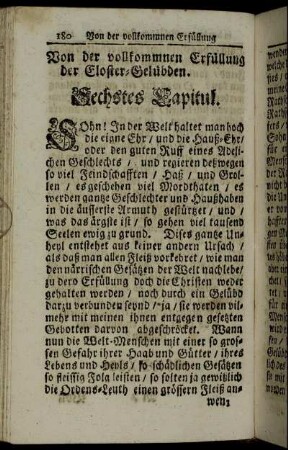 180 Von der vollkommnen Erfüllung
Von der vollkommnen Erfüllung
der Closter-Gelübden.
Sechstes Capitul.
SOhn! In der Welt haltet man hoch
die eigne Ehr / und die Hauß-Ehr /
oder den guten Ruff eines Adeli-
chen Geschlechts / und regieren deßwegen
so viel Feindschafften / Haß / und Grol-
len / es geschehen viel Mordthaten / es
werden gantze Geschlechter und Haußhaben
in die äusserste Armuth gestürtzet / und /
was das ärgste ist / so gehen vil tausend
Seelen ewig zu grund. Dises gantze Un-
heyl entstehet aus keiner andern Ursach /
als daß man allen Fleiß vorkehret / wie man
den närrischen Gesätzen der Welt nachlebe /
zu dero Erfüllung doch die Christen weder
gehalten werden / noch durch ein Gelübd
darzu verbunden seynd / ja / sie werden vil-
mehr mit meinen ihnen entgegen gesetzten
Gebotten darvon abgeschröcket. Wann
nun die Welt-Menschen mit einer so gros-
sen Gefahr ihrer Haab und Gütter / ihres
Lebens und Heyls / so schädlichen Gesätzen
so fleissig Folg leisten / so solten ja gewißlich
die Ordens-Leuth einen grössern Fleiß an-
wen-